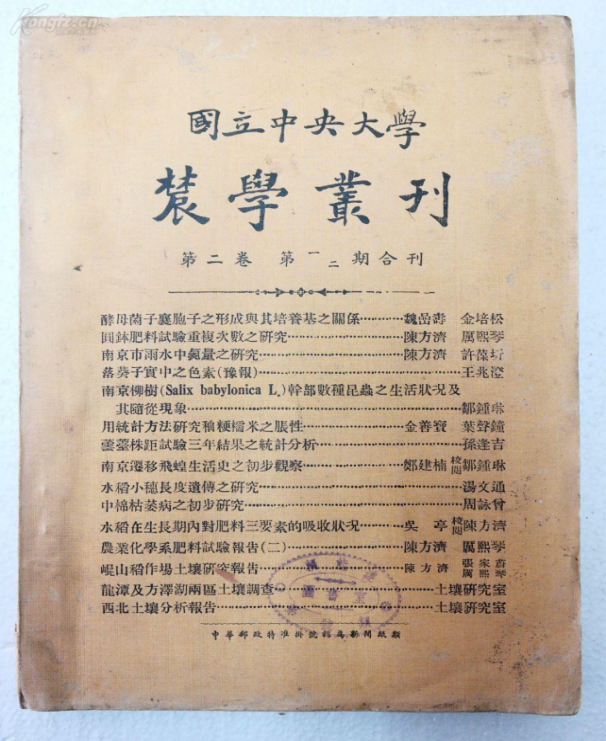 Kongfz.cn
國立中央大學
農學叢刊
第二卷 第一二期合刊
酵母菌子囊胞子之形成與其培養基之關係…………魏嵒壽 金培松
圓鉢肥料試驗重複次數之研究…………陳方濟 厲熙琴
南京市雨水中氮量之研究…………陳方濟 許葆
落葵子實中之色素(豫報)…………王兆澄
南京柳樹(Salix babylonica L.)幹部數種昆蟲之生活狀况及
其隨從現象…………鄒鍾琳
用統計方法研究秈粳糯米之脹性…………金善寶 葉聲鐘
蕓薹株距試驗三年結果之統計分析…………孫逢吉
南京遷移飛蝗生活史之初步觀察…………鄭建楠 校閱 鄒鍾琳
水稻小穗長度遺傳之研究…………湯文通
中棉枯萎病之初步研究…………周詠曾
水稻在生長期內對肥料三要素的吸收狀况…………吳亭 校閱 陳方濟
農業化學系肥料試驗報告(二)…………陳方濟 厲熙琴
崐山稻作場土壤研究報告…………陳方濟 張家 厲熙琴
龍潭及方澤湖兩區土壤調查…………土壤研究室
西北土壤分析報告…………土壤研究室
中華郵政特准掛號認爲新聞紙類